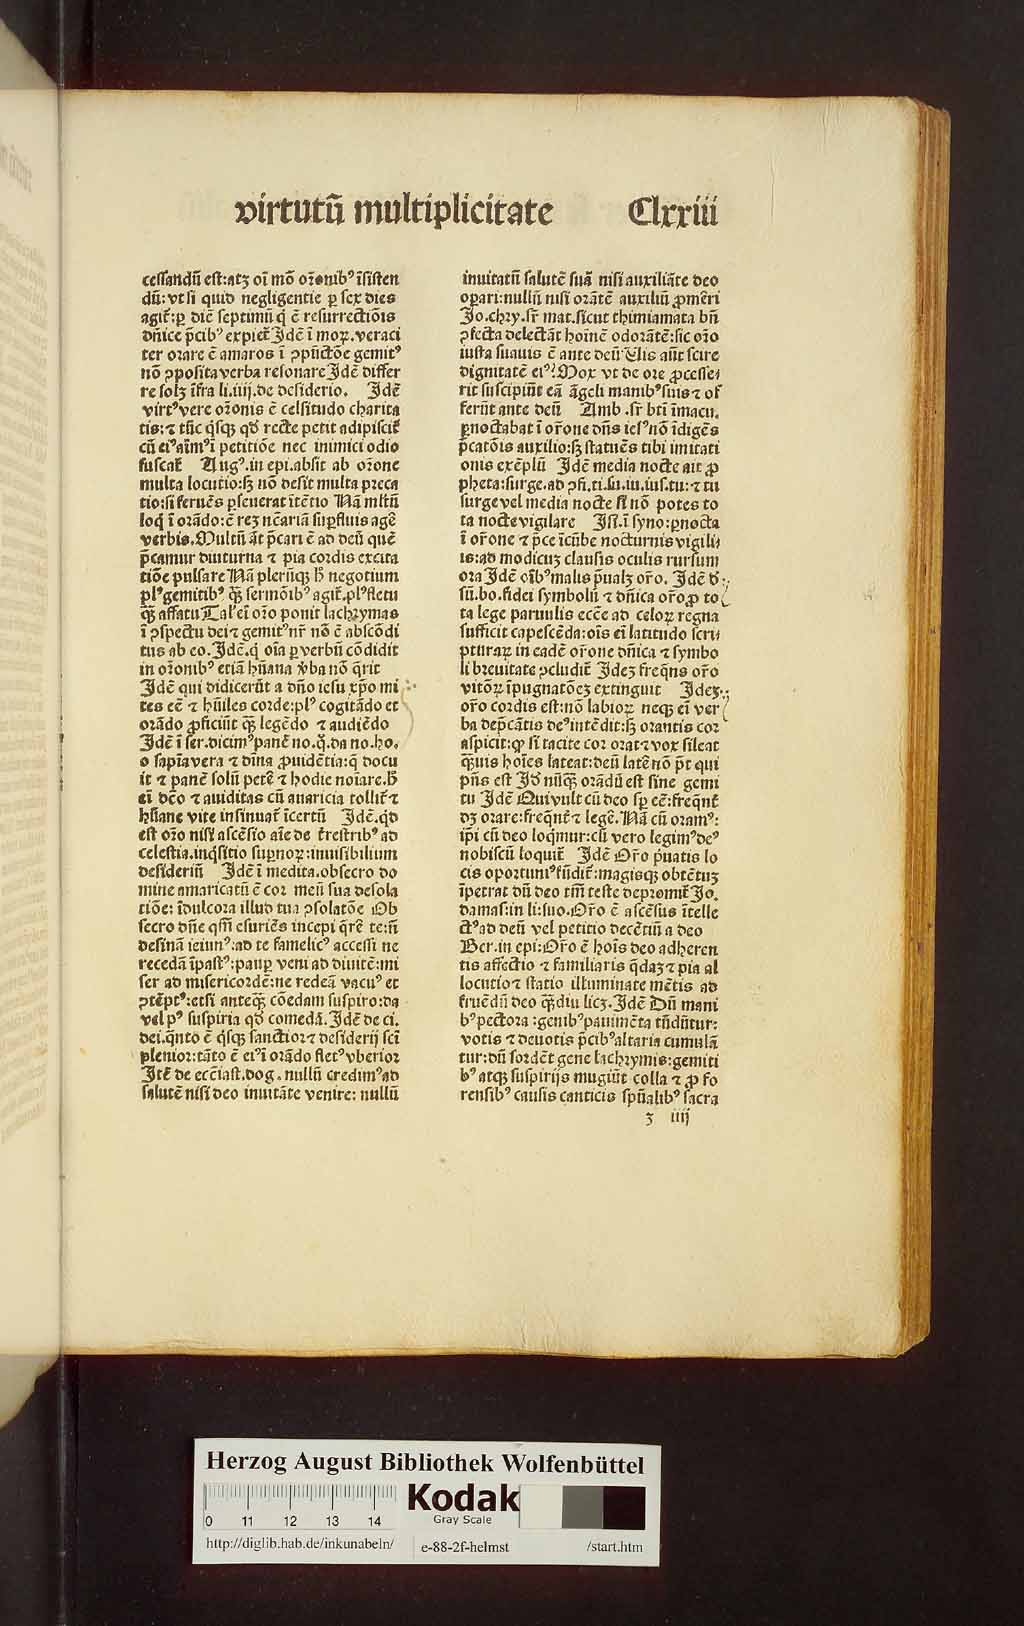 virtutū multiplicitate Clxxiii
cessandū est:atqꝫ oī mō or̄onibꝰ īsisten
dū:vt si quid negligentie ꝑ sex dies
agit̄:ꝑ diē septimū q̄ ē resurrectiōis
dn̄ice p̄cibꝰ expiet̄ Idē ī moꝝ.veraci
ter orare ē amaros ī ɔpūctōe gemitꝰ
nō ɔposita verba resonare Idē differ
re solꝫ īfra li.iiij.de desiderio. Idē
virtꝰ vere or̄onis ē celsitudo charita
tis:⁊ tūc q̇sqꝫ qd̄ recte petit adipiscit̄
cū eiꝰ aīmꝰ ī petitiōe nec inimici odio
fuscat̄ Aug.in epi.absit ab or̄one
multa locutio:sꝫ nō desit multa preca
tio:si feruēs ꝑseuerat ītētio Nā mltū
loq̇ ī orādo:ē reꝫ nc̄ariā suꝑfluis agē
verbis.Multū āt p̄cari ē ad deū quē
p̄camur diuturna ⁊ pia cordis excita
tiōe pulsare Nā plerūqꝫ h̄ negotium
plꝰ gemitibꝰ q̄ꝫ sermōibꝰ agit̄.plꝰ fletu
q̄ꝫ affatu Talꝰ ei or̄o ponit lachrymas
ī ɔspectu dei ⁊ gemitꝰ nr̄ nō ē abscōdi
tus ab eo.Idē.q̇ oīa ꝑ verbū cōdidit
in or̄onibꝰ etiā hūana v̄ba nō q̄rit
Idē qui didicerūt a dn̄o iesu xp̄o mi
tes eē ⁊ hūiles corde:plꝰ cogitādo et
orādo ꝓficiūt q̄ꝫ legēdo ⁊ audiēdo
Idē ī ser.dicimꝰ panē no.q̄.da no.ho.
o sapīa vera ⁊ dīna ꝓuidētia:q̄ docu
it ⁊ panē solū petē ⁊ hodie noīare.h̄
ei dc̄o ⁊ auiditas cū auaricia tollit̄ ⁊
hūane vite insinuat̄ īcertū Idē.qd̄
est or̄o nisi ascēsio aīe de t̄restribꝰ ad
celestia.inq̇sitio suꝑnoꝝ:inuisibilium
desideriū Idē ī medita.obsecro do
mine amaricatū ē cor meū sua desola
tiōe: īdulcora illud tua ɔsolatōe Ob
secro dn̄e qm̄ esuriēs incepi q̄rē te:n̄
desinā ieiunꝰ:ad te famelicꝰ accessi ne
recedā īpastꝰ:pauꝑ veni ad diuitē:mi
ser ad misericordē:ne redeā vacuꝰ et
ɔtēptꝰ:etsi anteq̄ꝫ cōedam suspiro:da
vel pꝰ suspiria qd̄ comedā.Idē de ci.
dei.q̇nto ē q̇sqꝫ sanctior ⁊ desiderij sc̄i
plenior:tāto ē eiꝰ ī orādo fletꝰ vberior
Itē de ecc̄iast.dog.nullū credimꝰ ad
salutē nisi deo inuitāte venire: nullū
inuitatū salutē suā nisi auxiliāte deo
oꝑari:nullū nisi orātē auxiliū ꝓmēri
Jo.chry.sr̄ mat.sicut thimiamata bn̄
ɔfecta delectāt hoīnē odorātē:sic or̄o
iusta suauis ē ante deū Uis aūt scire
dignitatē eiꝰ? Mox vt de ore ꝓcesse
rit suscipiūt eā āgeli manibꝰ suis ⁊ of
ferūt ante deū Amb.sr̄ bt̄i īmacu.
ꝑnoctabat ī or̄one dn̄s iesꝰ nō īdigēs
p̄catōis auxilio:sꝫ statuēs tibi imitati
onis exēplū Idē media nocte ait ꝓ
pheta:surge.ad ɔfi.ti.su.iu.ius.tu:⁊ tu
surge vel media nocte si nō potes to
ta nocte vigilare Isi.ī syno:ꝑnocta
ī or̄one ⁊ p̄ce īcūbe nocturnis vigilij
is:ad modicuꝫ clausis oculis rursum
ora Idē oībꝰ malis p̄ualꝫ or̄o. Idē d̄
sū.bo.fidei symbolū ⁊ dn̄ica or̄o ꝓ to
ta lege paruulis ecc̄e ad celoꝝ regna
sufficit capescēda:oīs ei latitudo scri
pturaꝝ in eadē or̄one dn̄ica ⁊ symbo
li breuitate ɔcludit̄ Ideꝫ freq̄ns or̄o
vitōꝝ īpugnatōeꝫ extinguit Ideꝫ
or̄o cordis est:nō labioꝝ neqꝫ ei ver
ba dep̄cātis deꝰ intēdit:sꝫ orantis cor
aspicit:ꝙ si tacite cor orat ⁊ vox sileat
q̄ꝫuis hoīes lateat:deū latē nō p̄t qui
pn̄s est Id nūq̄ꝫ orādū est sine gemi
tu Idē Qui vult cū deo sꝑ eē:freq̄nt̄
dꝫ orare:freq̄nt̄ ⁊ legē.Nā cū oramꝰ:
ip̄i cū deo loq̄mur:cū vero legimꝰ deꝰ
nobiscū loquit̄ Idē Or̄o p̄uatis lo
cis oportuniꝰ fūdit̄:magisqꝫ obtētuꝫ
īpetrat dū deo tm̄ teste depromit̄ Jo.
damas:in li:suo.Or̄o ē ascēsus ītelle
ctꝰ ad deū vel petitio decētiū a deo
Ber.in epi:Or̄o ē hoīs deo adheren
tis affectio ⁊ familiaris q̄daꝫ ⁊ pia al
locutio ⁊ statio illuminate mētis ad
fruēdū deo q̄ꝫdiu licꝫ.Idē Dū mani
bꝰ pectora:genibꝰ pauimēta tūdūtur:
votis ⁊ deuotis p̄cibꝰ altaria cumulā
tur:dū sordēt gene lachrymis:gemiti
bꝰ atqꝫ suspirijs mugiūt colla ⁊ ꝓ fo
rensibꝰ causis canticis spūalibꝰ sacra
ꝫ iiij
Herzog August Bibliothek Wolfenbüttel
0 11 12 13 14
Kodak
Gray Scale
http://diglib.hab.de/inkunabeln/ e-88-2f-helmst /start.htm